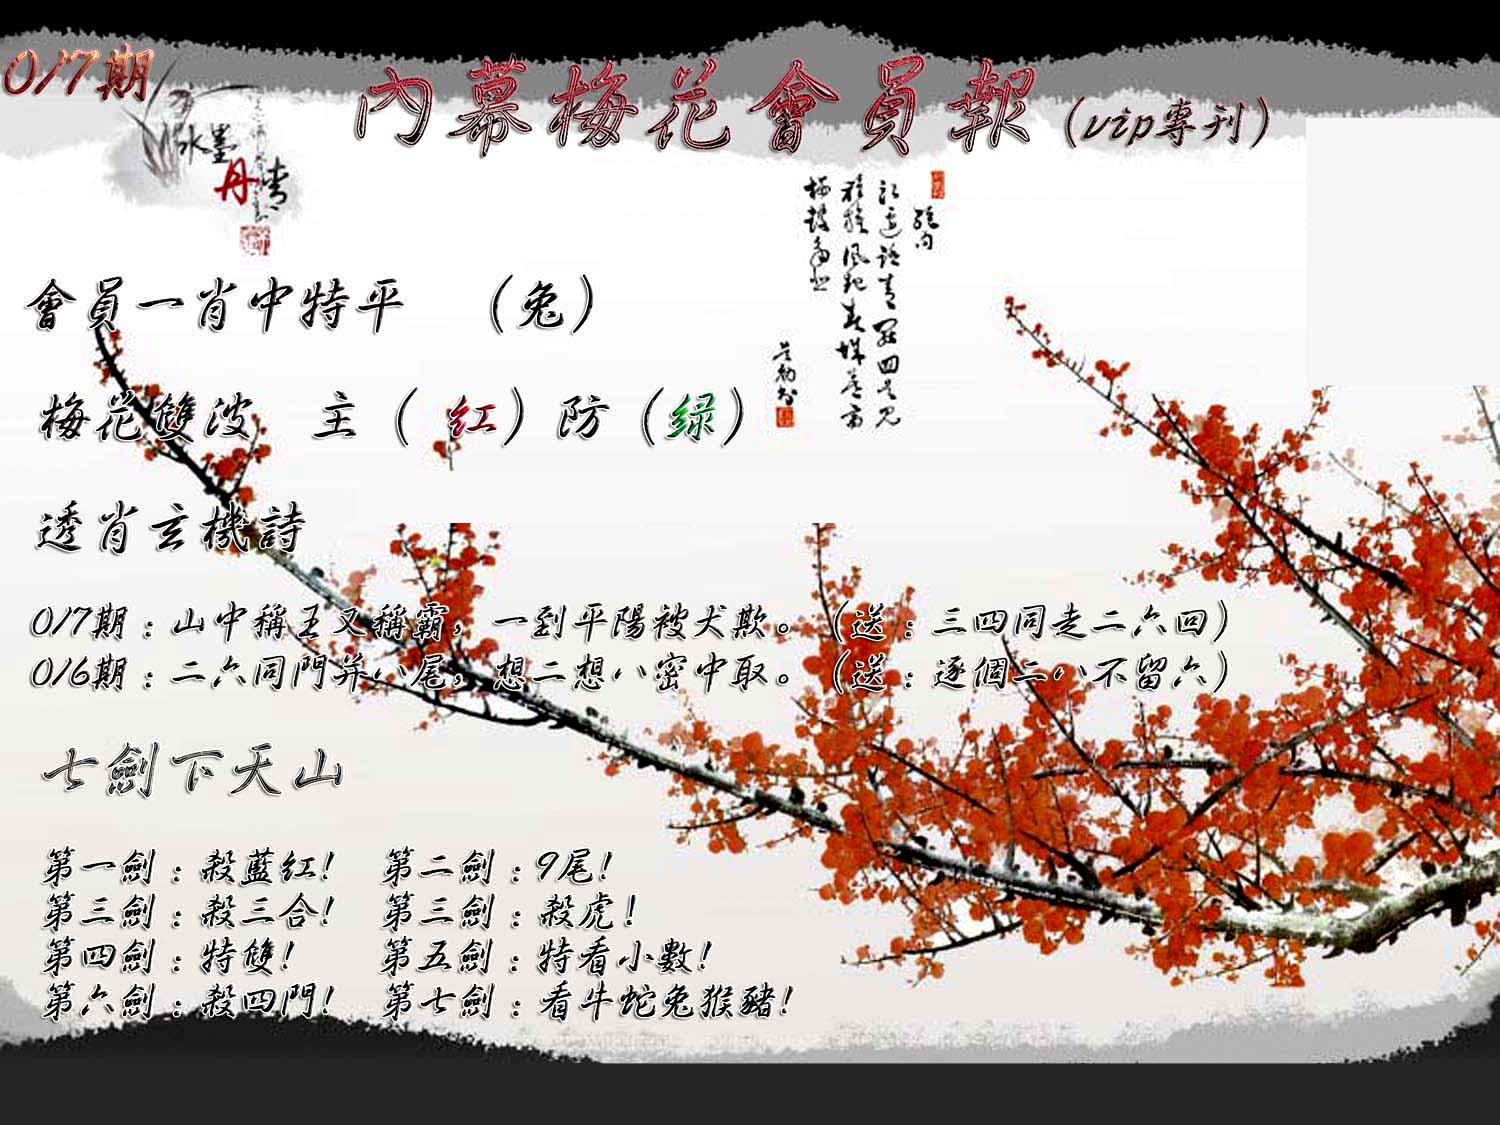 017期
內幕梅花會員報(vip專刊)
水墨
丹青
會員一肖中特平 (兔)
梅花雙波 主(紅)防(绿)
透肖玄機詩
017期:山中稱王又稱霸,一到平陽被犬欺。(送:三四同走二六回)
016期:二六同門并八尾,想二想八密中取。(送:逐個二八不留六)
七劍下天山
第一劍:殺藍紅! 第二劍:9尾!
第三劍:殺三合! 第三劍:殺虎!
第四劍:特雙! 第五劍:特看小數!
第六劍:殺四門! 第七劍:看牛蛇兔猴豬!